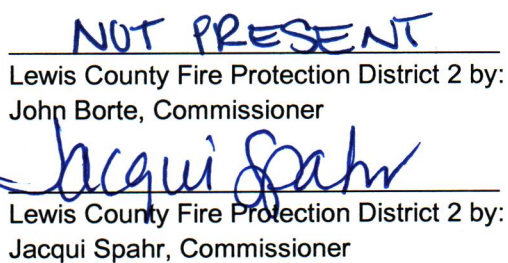 NOT PRESENT
Lewis County Fire Protection District 2 by:
John Borte, Commissioner
Jacqui Spahr
Lewis County Fire Protection District 2 by:
Jacqui Spahr, Commissioner